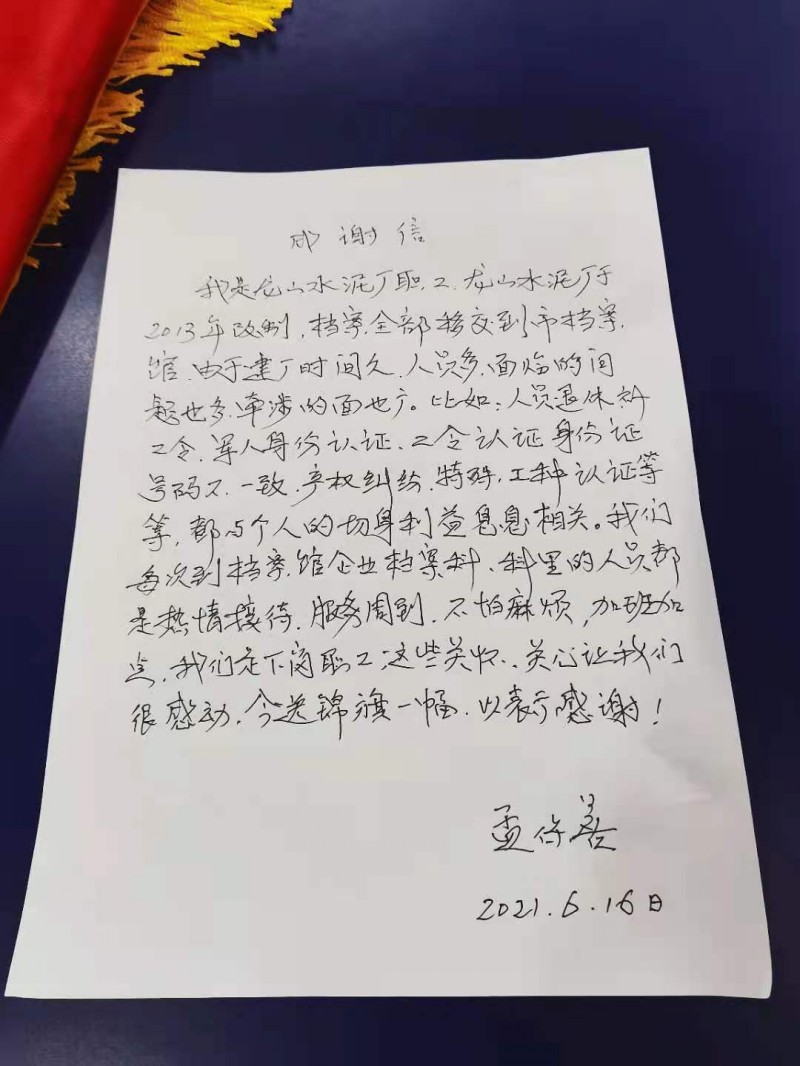 感谢信
我是龙山水泥厂职工.龙山水泥厂于
2013年改制,档案全部移交到市档案
馆.由于建厂时间久.人员多.面临的问
题也多.牵涉的面也广。比如:人员退休
工令.军人身份认证、工令认证身份证
号码不一致.产权纠纷.特殊工种认证等
等,都与个人的切身利益息息相关。我们
每次到档案馆企业档案科、科里的人员都
是热情接待.服务周到.不怕麻烦,加班加
点,我们是下岗职工这些关怀、关心让我们
很感动.今送锦旗一幅.以表示感谢!
孟保善
2021.6.16日